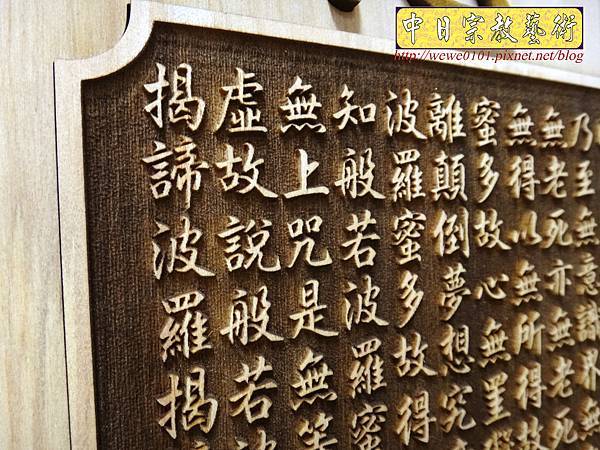 中日宗教藝術
http://wewe0101.pixnet.net/blog
乃至無意識界無
無老死亦無老死
無得以無所得故
蜜多故心無罣
離顛倒夢想究
波羅蜜多故得
知般若波羅蜜
無上咒是無等
虛故說般若
揭諦波羅揭